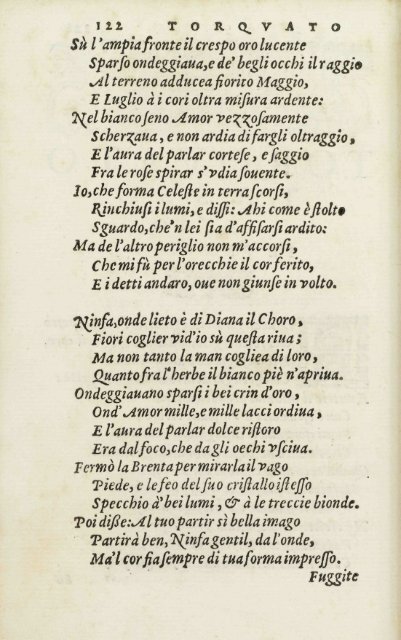 122 TORQVATO
Sù l'ampia fronte il crespo oro lucente
Sparso ondeggiaua, e de' begli occhi il raggio
Al terreno adducea fiorito Maggio,
E Luglio à i cori oltra misura ardente:
Nel bianco seno Amor vezzosamente
Scherzaua, e non ardia di fargli oltraggio,
E l'aura del parlar cortese, e saggio
Fra le rose spirar s'vdia souente.
Io, che forma Celeste in terra scorsi,
Rinchiusi i lumi, e dissi: Ahi come è stolto
Sguardo, che'n lei sia d'affisarsi ardito:
Ma de l'altro periglio non m'accorsi,
Che mi fù per l'orecchie il cor ferito,
E i detti andaro, oue non giunse in volto.
Ninfa, onde lieto è di Diana il Choro,
Fiori coglier vid'io sù questa riua;
Ma non tanto la man cogliea di loro,
Quanto fra l'herbe il bianco piè n'apriua.
Ondeggiauano sparsi i bei crin d'oro,
Ond' Amor mille, e mille lacci ordiua,
E l'aura del parlar dolce ristoro
Era dal foco, che da gli oechi vsciua.
Fermò la Brenta per mirarla il vago
Piede, e le feo del suo cristallo istesso
Specchio à' bei lumi, & à le treccie bionde.
Poi diße: Al tuo partir sì bella imago
Partirà ben, Ninfa gentil, da l'onde,
Ma'l cor fia sempre di tua forma impresso.
Fuggite